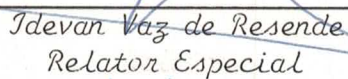 Idevan Vaz de Resende
Relator Especial